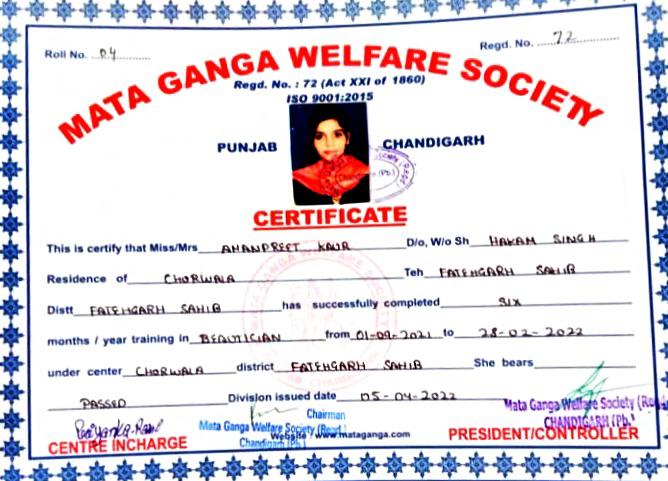 Roll No. 04
Regd. No. 72
MATA GANGA WELFARE SOCIETY
Regd. No. : 72 (Act XXI of 1860)
ISO 9001:2015
PUNJAB CHANDIGARH
CERTIFICATE
This is certify that Miss/Mrs AMANPREET KAUR D/o, W/o Sh HAKAM SINGH
Residence of CHORWALA Teh FATEHGARH SAHIB
Distt FATEHGARH SAHIB has successfully completed SIX
months / year training in BEAUTICIAN from 01-09-2021 to 28-02-2022
under center CHORWALA district FATEHGARH SAHIB She bears
PASSED Division issued date 05-04-2022
Chairman
Mata Ganga Welfare Society (Regd.)
Chandigarh (Pb.)
Mata Ganga Welfare Society
CHANDIGARH (Pb.)
CENTRE INCHARGE
Website : www.mataganga.com
PRESIDENT/CONTROLLER